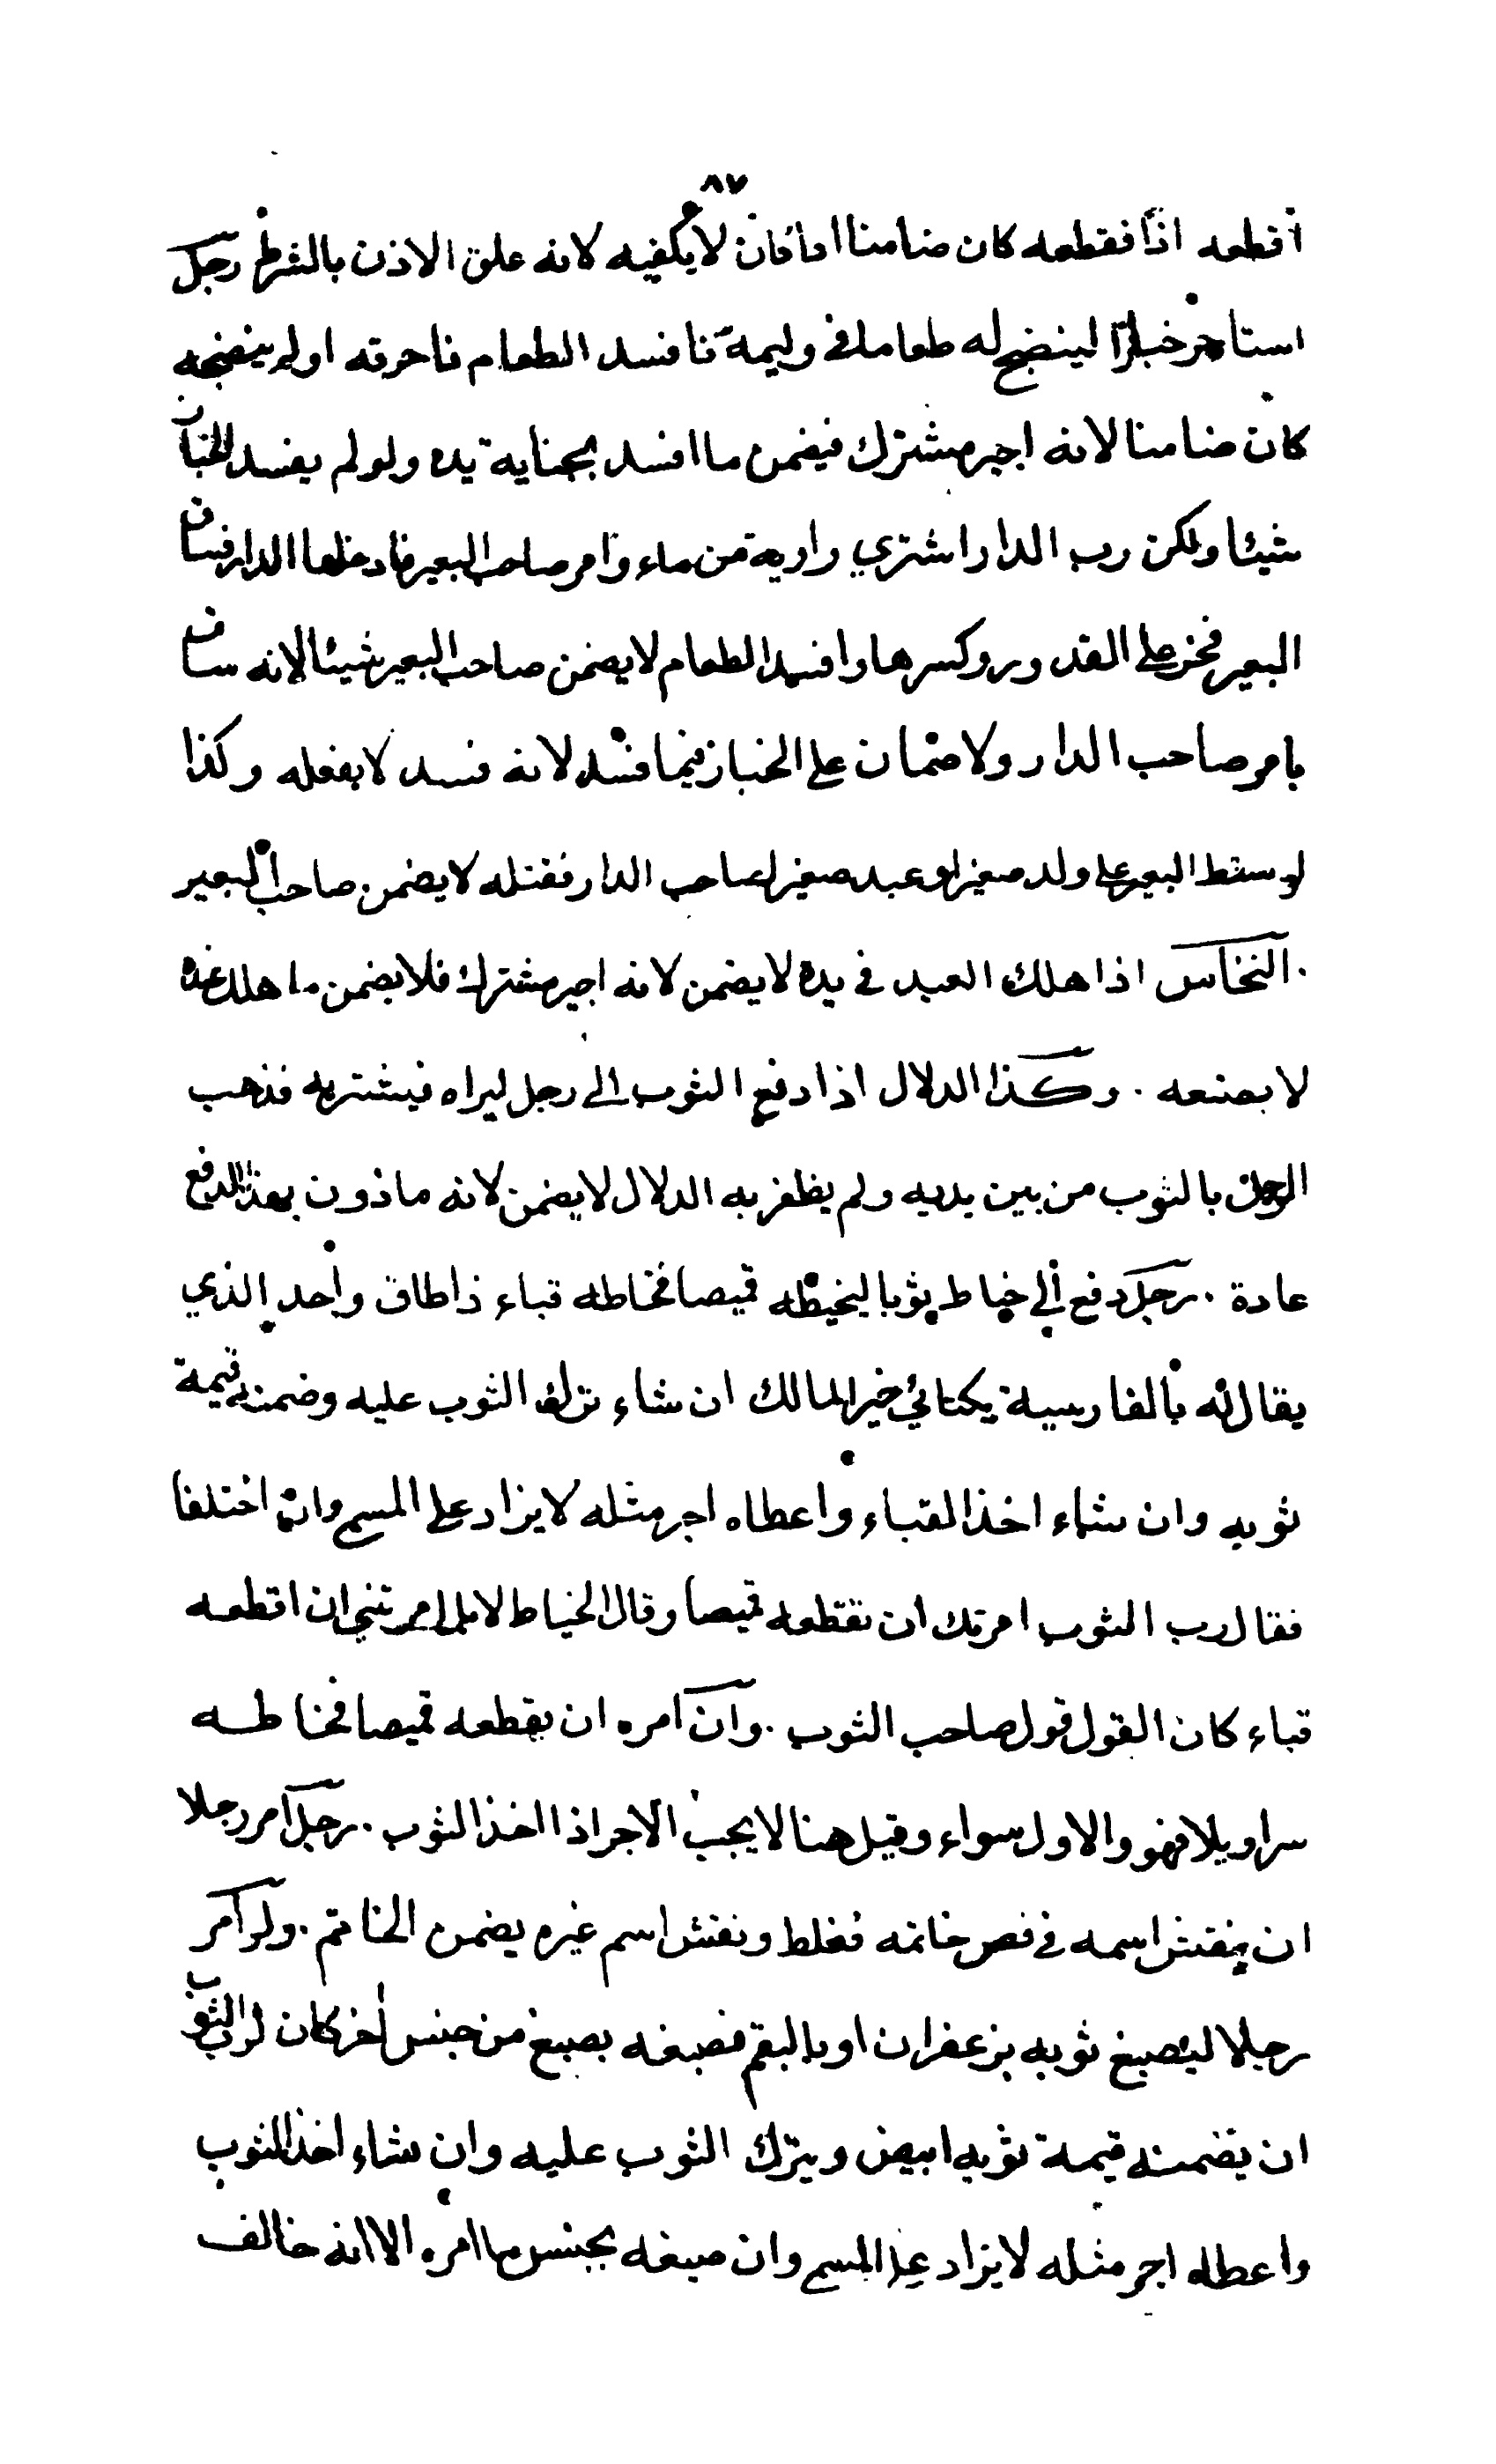 ٨٧
اقطعه اذا فقطعه كان ضامنا اذا كان لا يكفيه لانه علق الاذن بالشرط رجل
استاجر خبازا لينضج له طعاما في وليمة فافسد الطعام فاحرقه اولم ينضجه
كان ضامنا لانه اجير مشترك فيضمن ما افسد بجناية يده ولولم يفسد الخباز
شيئا ولكن رب الدار اشتري راوية من ماء وامر صاحب البعير فادخلها الدار فساق
البعير فخر علي القدور وكسرها وافسد الطعام لا يضمن صاحب البعير شيئا لانه ساق
بامر صاحب الدار ولا ضمان علي الخباز فيما فسد لانه فسد لا بفعله وكذا
لو سقط البعير علي ولد صغير او عبد صغير لصاحب الدار فقتله لا يضمن صاحب البعير
. النخاس اذا هلك العبد في يده لا يضمن لانه اجير مشترك فلا يضمن ما هلك عنده
لا بصنعه . وكذا الدلال اذا دفع الثوب الي رجل ليراه فيشتريه فذهب
الرجل بالثوب من بين يديه ولم يظفر به الدلال لا يضمن لانه ماذون بهذا الدفع
عادة . رجل دفع الي خياط ثوبا ليخيطه قميصا فخاطه قباء ذا طاق واحد الذي
يقال له بالفارسية يكتائي خير المالك ان شاء ترك الثوب عليه وضمنه قيمة
ثوبه وان شاء اخذ القباء واعطاه اجر مثله لا يزاد علي المسمي وان اختلفا
فقال رب الثوب امرتك ان تقطعه قميصا وقال الخياط لا بل امرتني ان اقطعه
قباء كان القول قول صاحب الثوب . وان امره ان يقطعه قميصا فخاطه
سراويلا فهو والاول سواء وقيل هنا لا يجب الاجر اذا اخذ الثوب . رجل امر رجلا
ان ينقش اسمه في فص خاتمه فغلط ونقش اسم غيره يضمن الخاتم . ولو امر
رجلا ليصبغ ثوبه بزعفران او بالبقم فصبغه بصبغ من جنس اخر كان لرب الثوب
ان يضمنه قيمة ثوبه ابيض ويترك الثوب عليه وان شاء اخذ الثوب
واعطاه اجر مثله لا يزاد علي المسمي وان صبغه بجنس ما امره الا انه خالف